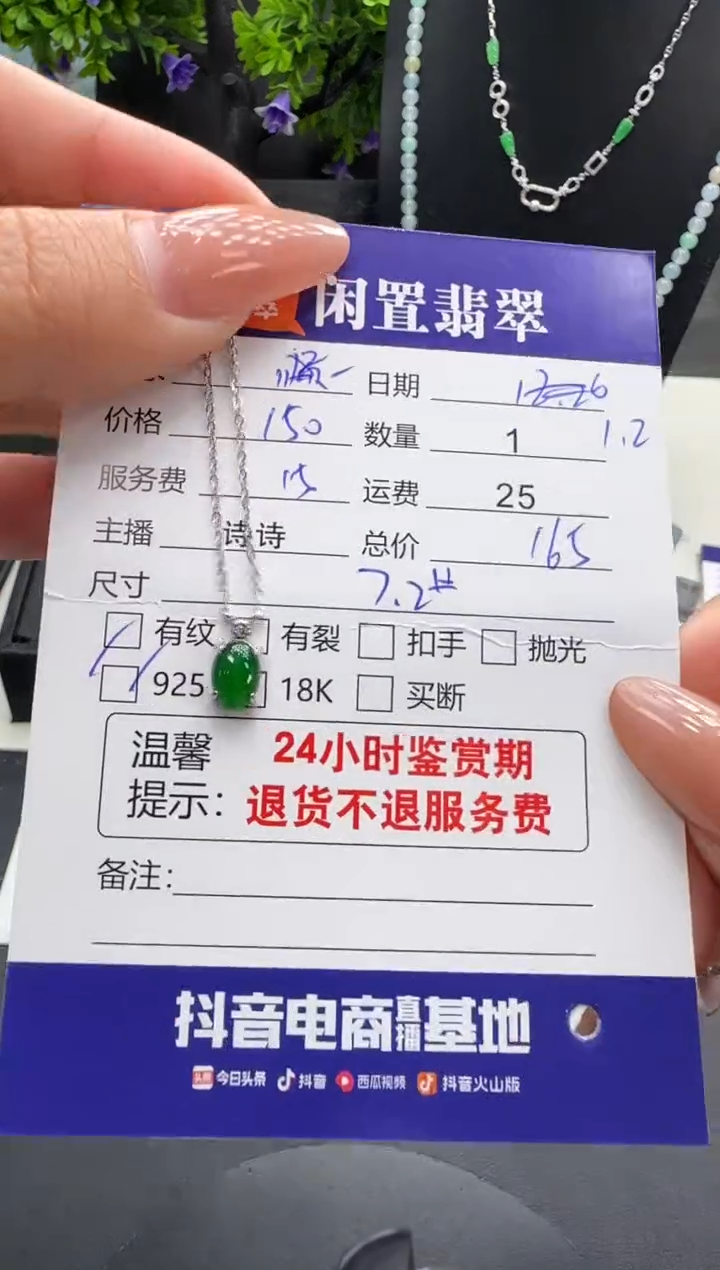 闲置翡翠
日期 12.26
价格 150 数量 1 1.2
服务费 15 运费 25
主播 诗诗 总价 165
尺寸 7.2#
有纹 有裂 扣手 抛光
925 18K 买断
温馨提示：
24小时鉴赏期
退货不退服务费
备注：
抖音电商直播基地
头条 今日头条 抖音 西瓜视频 抖音火山版